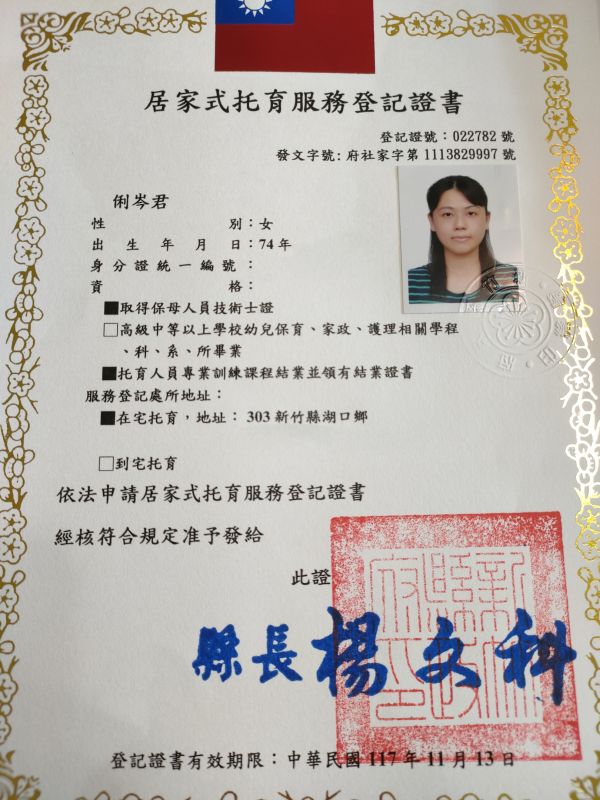 居家式托育服務登記證書
登記證號：022782 號
發文字號: 府社家字第 1113829997 號
俐岑君
性別：女
出生年月日：74年
身分證統一編號：
資格：
■取得保母人員技術士證
□高級中等以上學校幼兒保育、家政、護理相關學程
、科、系、所畢業
■托育人員專業訓練課程結業並領有結業證書
服務登記處所地址：
■在宅托育，地址： 303 新竹縣湖口鄉
□到宅托育
依法申請居家式托育服務登記證書
經核符合規定准予發給
此證
縣長楊文科
登記證書有效期限：中華民國 117 年 11 月 13 日